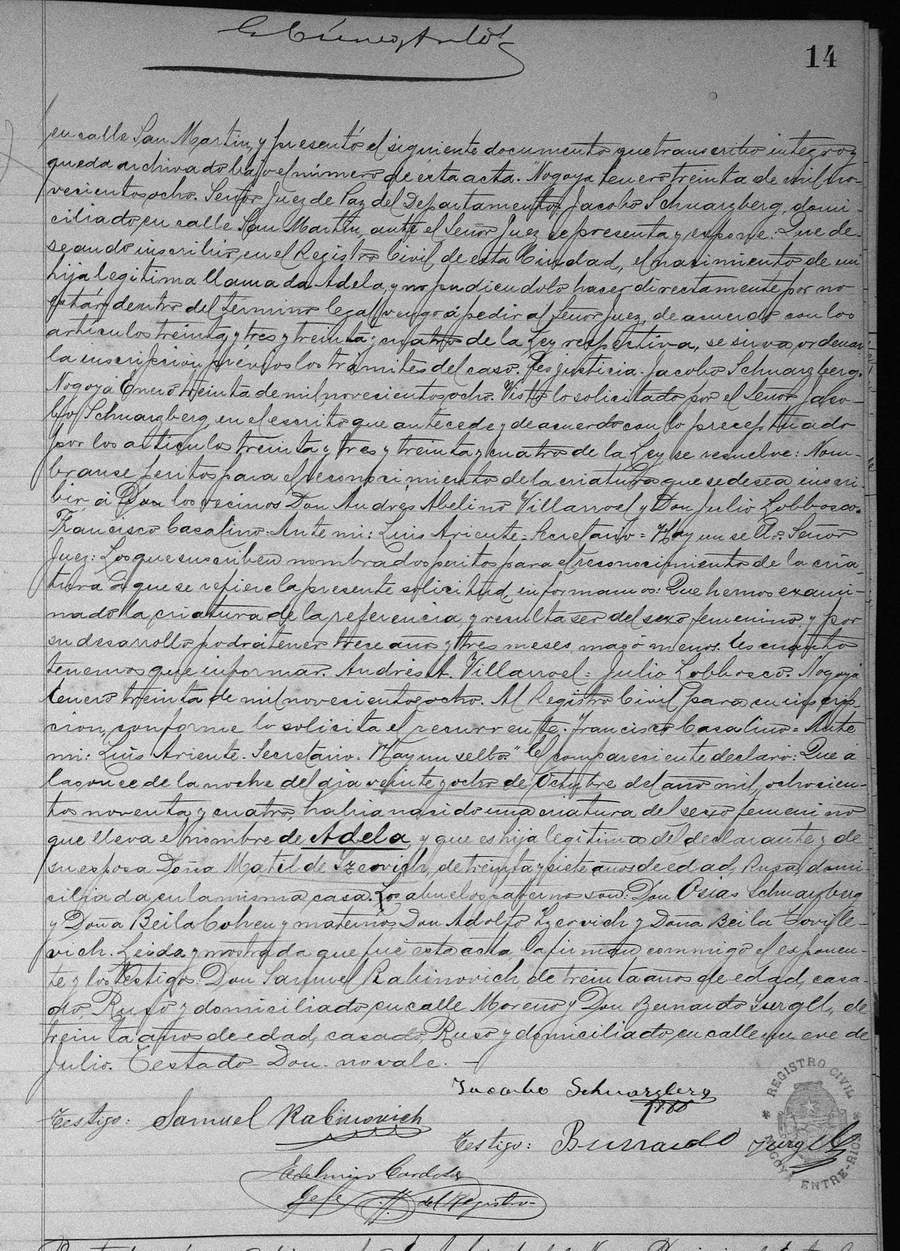 14
en calle San Martin, y presentó el siguiente documento que transcrito integro y
queda archivado bajo el número de esta acta. "Nogoya Enero treinta de mil no-
vecientos ocho. Señor Juez de Paz del Departamento, Jacobo Schuarzberg, domi-
ciliado en calle San Martin, ante el Señor Juez se presenta y expone: Que de-
seando inscribir, en el Registro Civil de esta Ciudad, el nacimiento de un
hija legitima llamada Adela, y no pudiendolo hacer directamente por no
estar dentro del termino legal, vengo á pedir al Señor Juez, de acuerdo con los
articulos treinta y tres y treinta y cuatro de la Ley respectiva, se sirva ordenar
la inscripcion, previos los trámites del caso. Es justicia. Jacobo Schuarzberg.
Nogoya Enero treinta de mil novecientos ocho. Visto lo solicitado por el Señor Jaco-
bo Schuarzberg, en el escrito que antecede y de acuerdo con lo preceptuado
por los articulos treinta y tres y treinta y cuatro de la Ley se resuelve: Nom-
branse peritos para el reconocimiento de la criatura que se desea inscri-
bir á Don los vecinos Don Andrés Abelino Villarroel y Don Julio Lobbosco.
Francisco Casalino. Ante mi: Luis Ariente. Secretario = Hay un sello. Señor
Juez: Los que suscriben nombrados peritos para el reconocimiento de la cria-
tura á que se refiere la presente solicitud, informamos: Que hemos exami-
nado la criatura de la referencia y resulta ser del sexo femenino y por
su desarrollo podrá tener trece años y tres meses, mas o menos. Es cuanto
tenemos que informar. Andrés A. Villarroel = Julio Lobbosco. Nogoyá
Enero treinta de mil novecientos ocho. Al Registro Civil para su inscrip-
cion, conforme lo solicita el recurrente. Francisco Casalino = Ante
mi: Luis Ariente. Secretario. Hay un sello." El compareciente declaró: Que á
las once de la noche del dia veinte y ocho de Octubre del año mil ochocien-
tos noventa y cuatro, habia nacido una criatura del sexo femenino
que lleva el nombre de Adela y que es hija legitima del declarante y de
su esposa Doña Matilde Izcovigh, de treinta y siete años de edad, Rusa, domi-
ciliada en la misma casa. Los abuelos paternos son: Don Osias Schuarzberg
y Doña Beila Cohen y maternos Don Adolfo Izcovich y Doña Beila
vich. Leida y mostrada que fué esta acta, la firman conmigo el exponen-
te y los testigos Don Samuel Rabinovich de treinta años de edad, casa-
do, Ruso y domiciliado en calle Moreno y Don Bernardo de
treinta años de edad, casado, Ruso y domiciliado en calle nueve de
Julio. Testado = Don = no vale. —
Jacobo Schuarzberg
Testigo: Samuel Rabinovich
Testigo:
Gefe del Registro
* REGISTRO CIVIL * NOGOYA ENTRE-RIOS